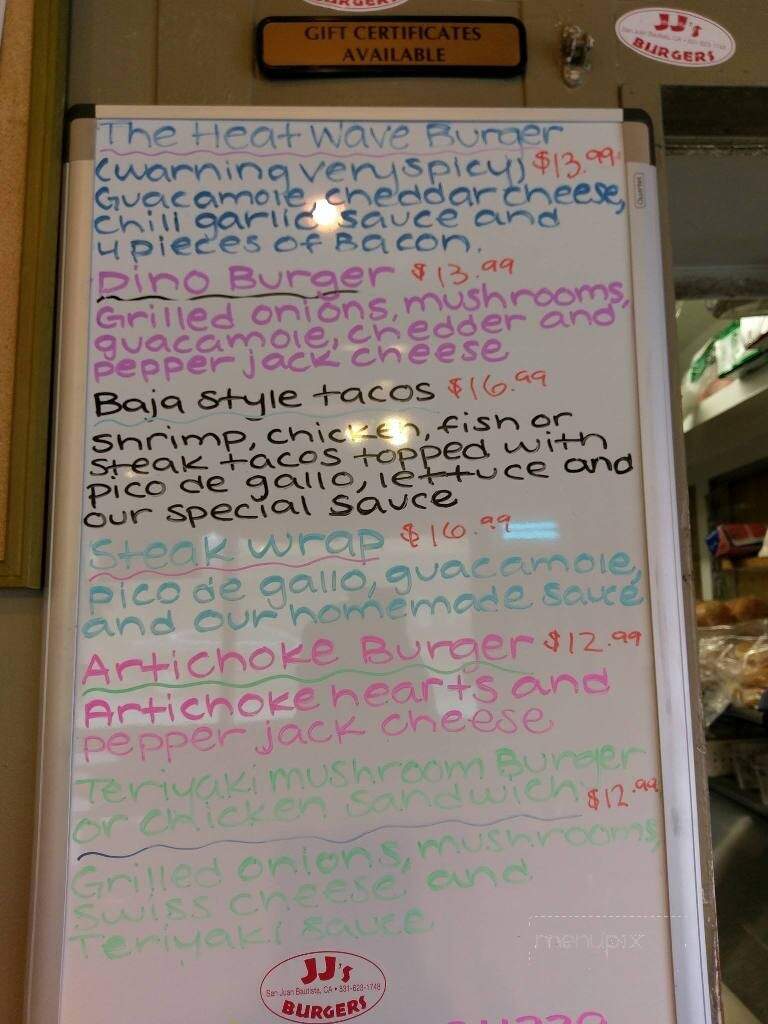 GIFT CERTIFICATES
AVAILABLE
BURGERS
JJ's
BURGERS
The Heat Wave Burger
(warning very spicy) $13.99
Guacamole, cheddar cheese,
chili garlic sauce and
4 pieces of Bacon.
Dino Burger $13.99
Grilled onions, mushrooms,
guacamole, chedder and
pepper jack cheese
Baja style tacos $16.99
shrimp, chicken, fish or
steak tacos topped with
pico de gallo, lettuce and
our special sauce
Steak wrap $16.99
pico de gallo, guacamole,
and our homemade sauce
Artichoke Burger $12.99
Artichoke hearts and
pepper jack cheese
Teriyaki mushroom Burger
or chicken sandwich $12.99
Grilled onions, mushrooms,
swiss cheese and
Teriyaki sauce
menupix
JJ's
San Juan Bautista, CA • 831-623-1748
BURGERS